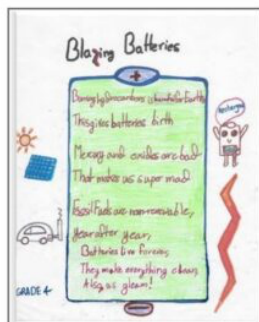 Blazing Batteries
+
Burning hydrocarbons is harmful for Earth
This gives batteries birth
Mercury and oxides are bad
That makes us super mad
Fossil Fuels are nonrenewable,
year after year,
Batteries live forever,
They make everything clean,
Also, as gleam!
GRADE 4